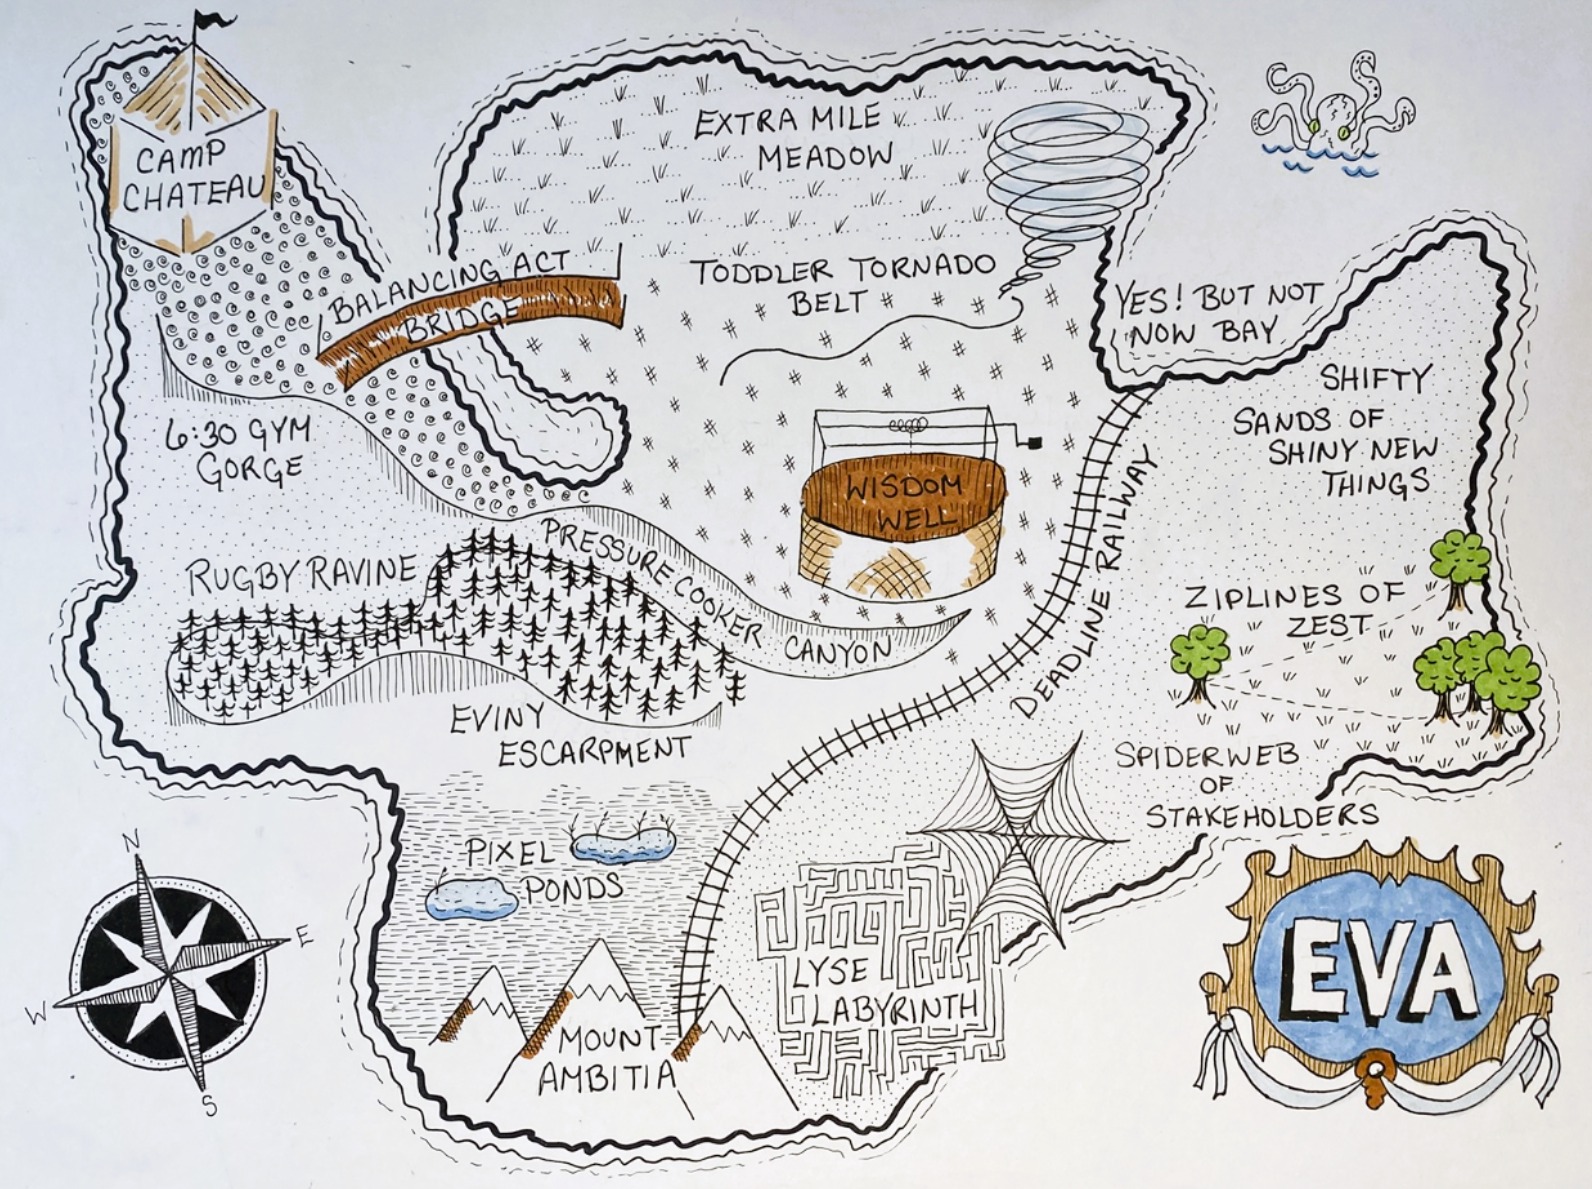 CAMP
CHATEAU
EXTRA MILE
MEADOW
BALANCING ACT
BRIDGE
TODDLER TORNADO
BELT
YES! BUT NOT
NOW BAY
SHIFTY
SANDS OF
SHINY NEW
THINGS
6:30 GYM
GORGE
WISDOM
WELL
DEADLINE RAILWAY
RUGBY RAVINE
PRESSURE COOKER
CANYON
ZIPLINES OF
ZEST
EVINY
ESCARPMENT
SPIDERWEB
OF
STAKEHOLDERS
PIXEL
PONDS
LYSE
LABYRINTH
MOUNT
AMBITIA
N
E
W
S
EVA